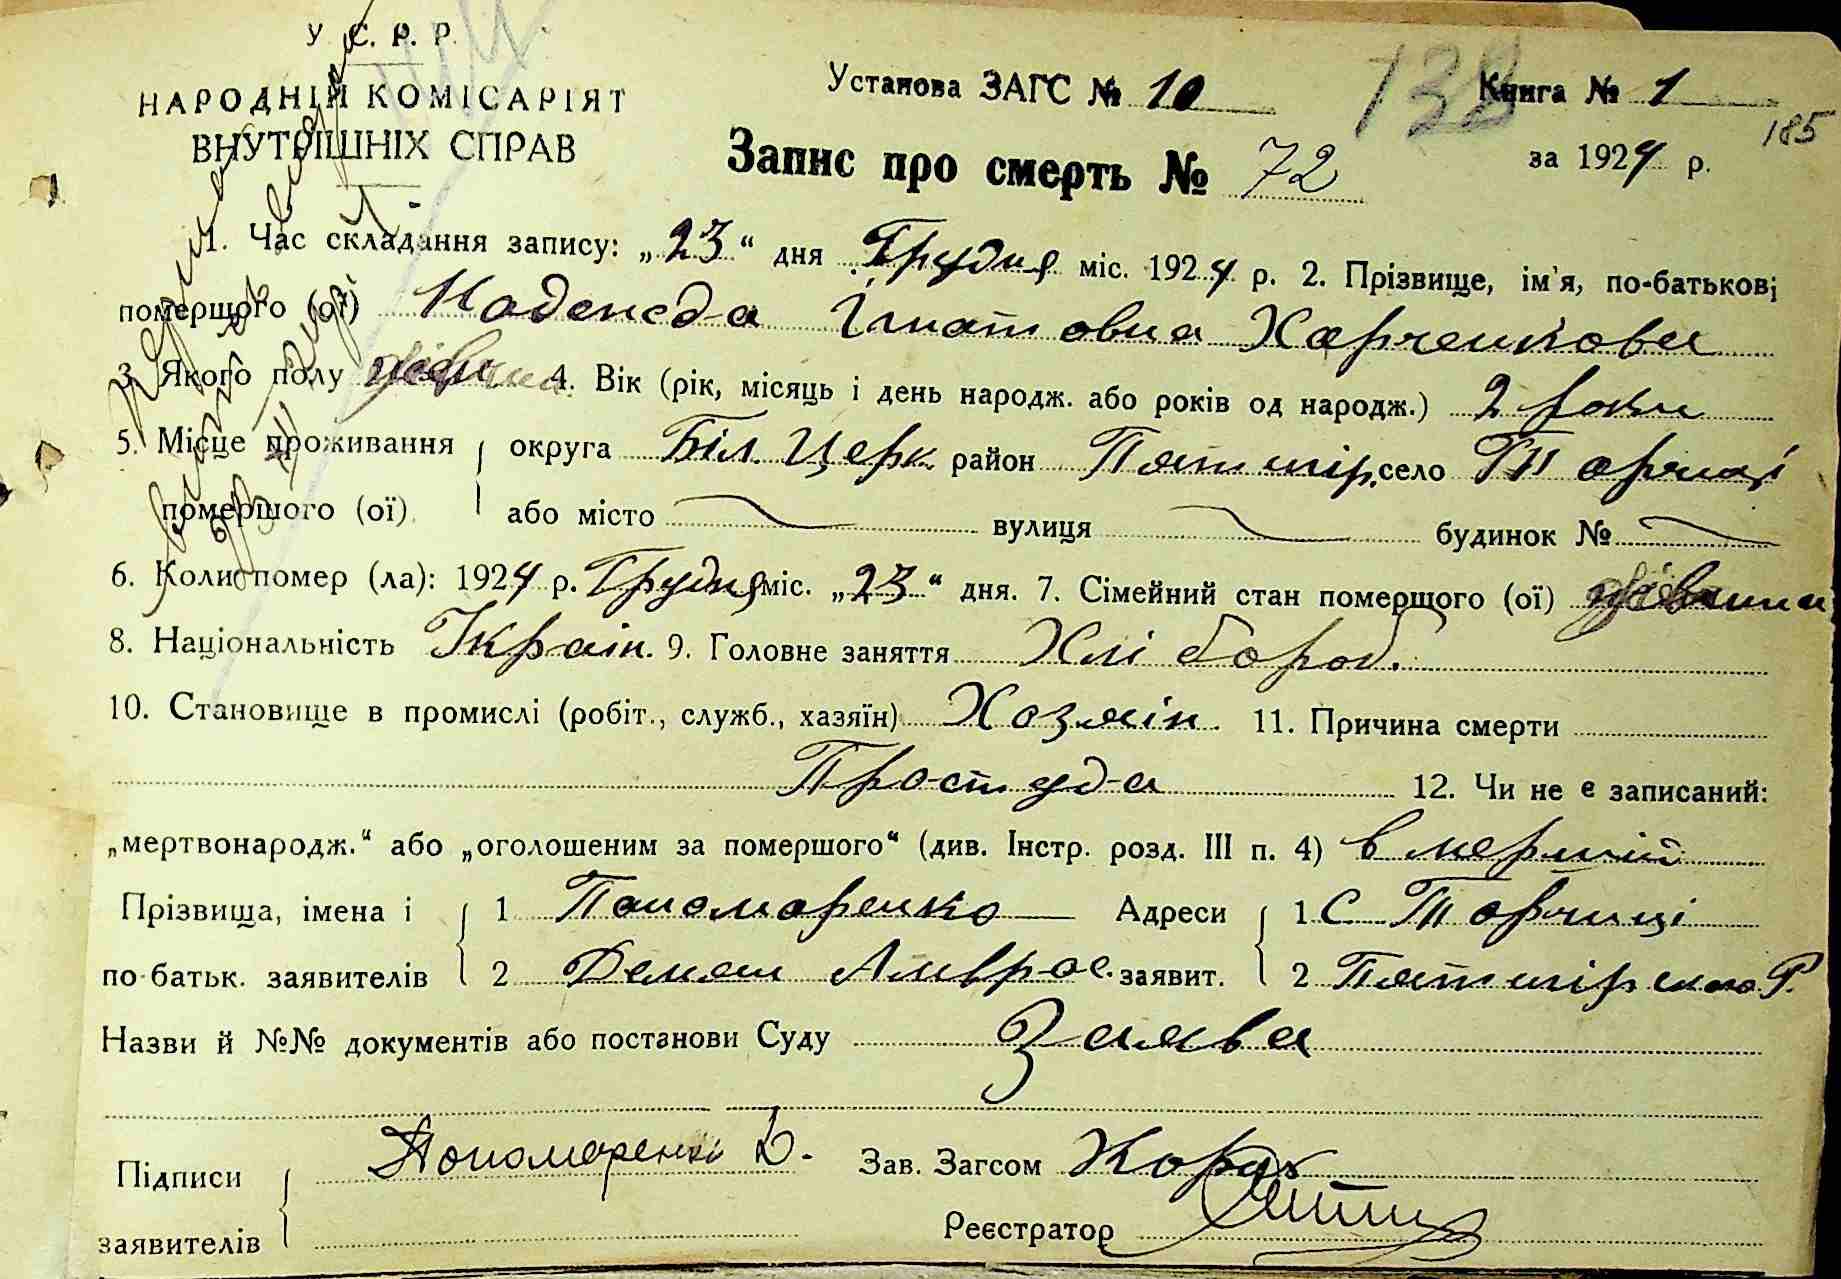 У. С. Р. Р.
НАРОДНІЙ КОМІСАРІЯТ
ВНУТРІШНІХ СПРАВ
Установа ЗАГС № 10
138
Книга № 1
185
Запис про смерть № 72
за 1924 р.
1. Час складання запису: „23“ дня Грудня міс. 1924 р. 2. Прізвище, ім'я, по-батькові
померщого (ої) Надежда Ігнатовна Харченкова
3. Якого полу 4. Вік (рік, місяць і день народж. або років од народж.) 2 роки
5. Місце проживання округа Біл. Церк. район Пятигір. село Торчиці
помершого (ої) або місто вулиця будинок №
6. Коли помер (ла): 1924 р. Грудня міс. „23“ дня. 7. Сімейний стан померщого (ої)
8. Національність Україн. 9. Головне заняття Хлібороб.
10. Становище в промислі (робіт., служб., хазяїн) Хозяїн. 11. Причина смерти
Простуда 12. Чи не є записаний:
„мертвонародж.“ або „оголошеним за помершого“ (див. Інстр. розд. III п. 4) вмерший
Прізвища, імена і 1 Пономаренко Адреси 1 С Торчиці
по-батьк. заявителів 2 Демян Амврос. заявит. 2 Пятигірського Р.
Назви й №№ документів або постанови Суду Заява
Підписи Пономаренко Д. Зав. Загсом
заявителів Реєстратор